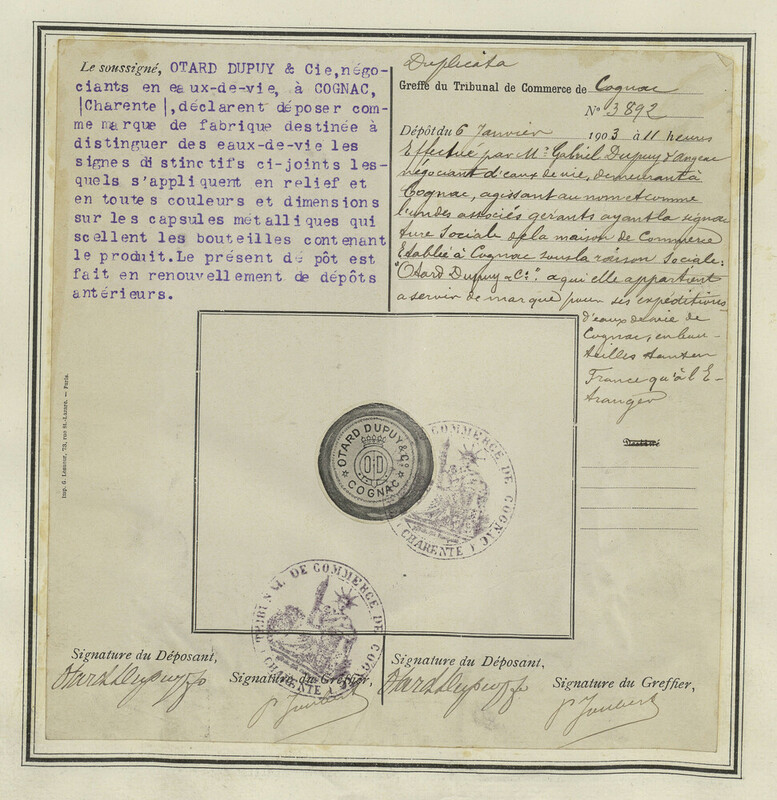 Le soussigné, OTARD DUPUY & Cie,négo-
ciants en eaux-de-vie, à COGNAC,
|Charente|,déclarent déposer com-
me marque de fabrique destinée à
distinguer des eaux-de-vie les
signes distinctifs ci-joints les-
quels s'appliquent en relief et
en toutes couleurs et dimensions
sur les capsules métalliques qui
scellent les bouteilles contenant
le produit.Le présent dépôt est
fait en renouvellement de dépôts
antérieurs.
Duplicata
Greffe du Tribunal de Commerce de Cognac
N° 3892
Dépôt du 6 Janvier 1903 à 11 heures
Effectué par Mr. Gabriel Dupuy d'Angeac
négociant d'eaux de vie, demeurant à
Cognac, agissant au nom et comme
l'un des associés gérants ayant la signa
ture Sociale de la maison de Commerce
Etablie à Cognac sous la raison Sociale:
"Otard Dupuy & Cie". a qui elle appartient
a servir de marque pour ses expéditions
d'eaux de vie de
Cognac, en bou-
teilles tant en
France qu'à l'E-
tranger
Destiné
Imp. G. Lesueur, 73, rue St-Lazare. — Paris.
OTARD DUPUY & Co
OD
COGNAC
TRIBUNAL DE COMMERCE DE COGNAC
(CHARENTE)
TRIBUNAL DE COMMERCE DE COGNAC
(CHARENTE)
Signature du Déposant,
Otard Dupuy & Co
Signature du Greffier,
p. Joubert
Signature du Déposant,
Otard Dupuy & Co
Signature du Greffier,
p. Joubert